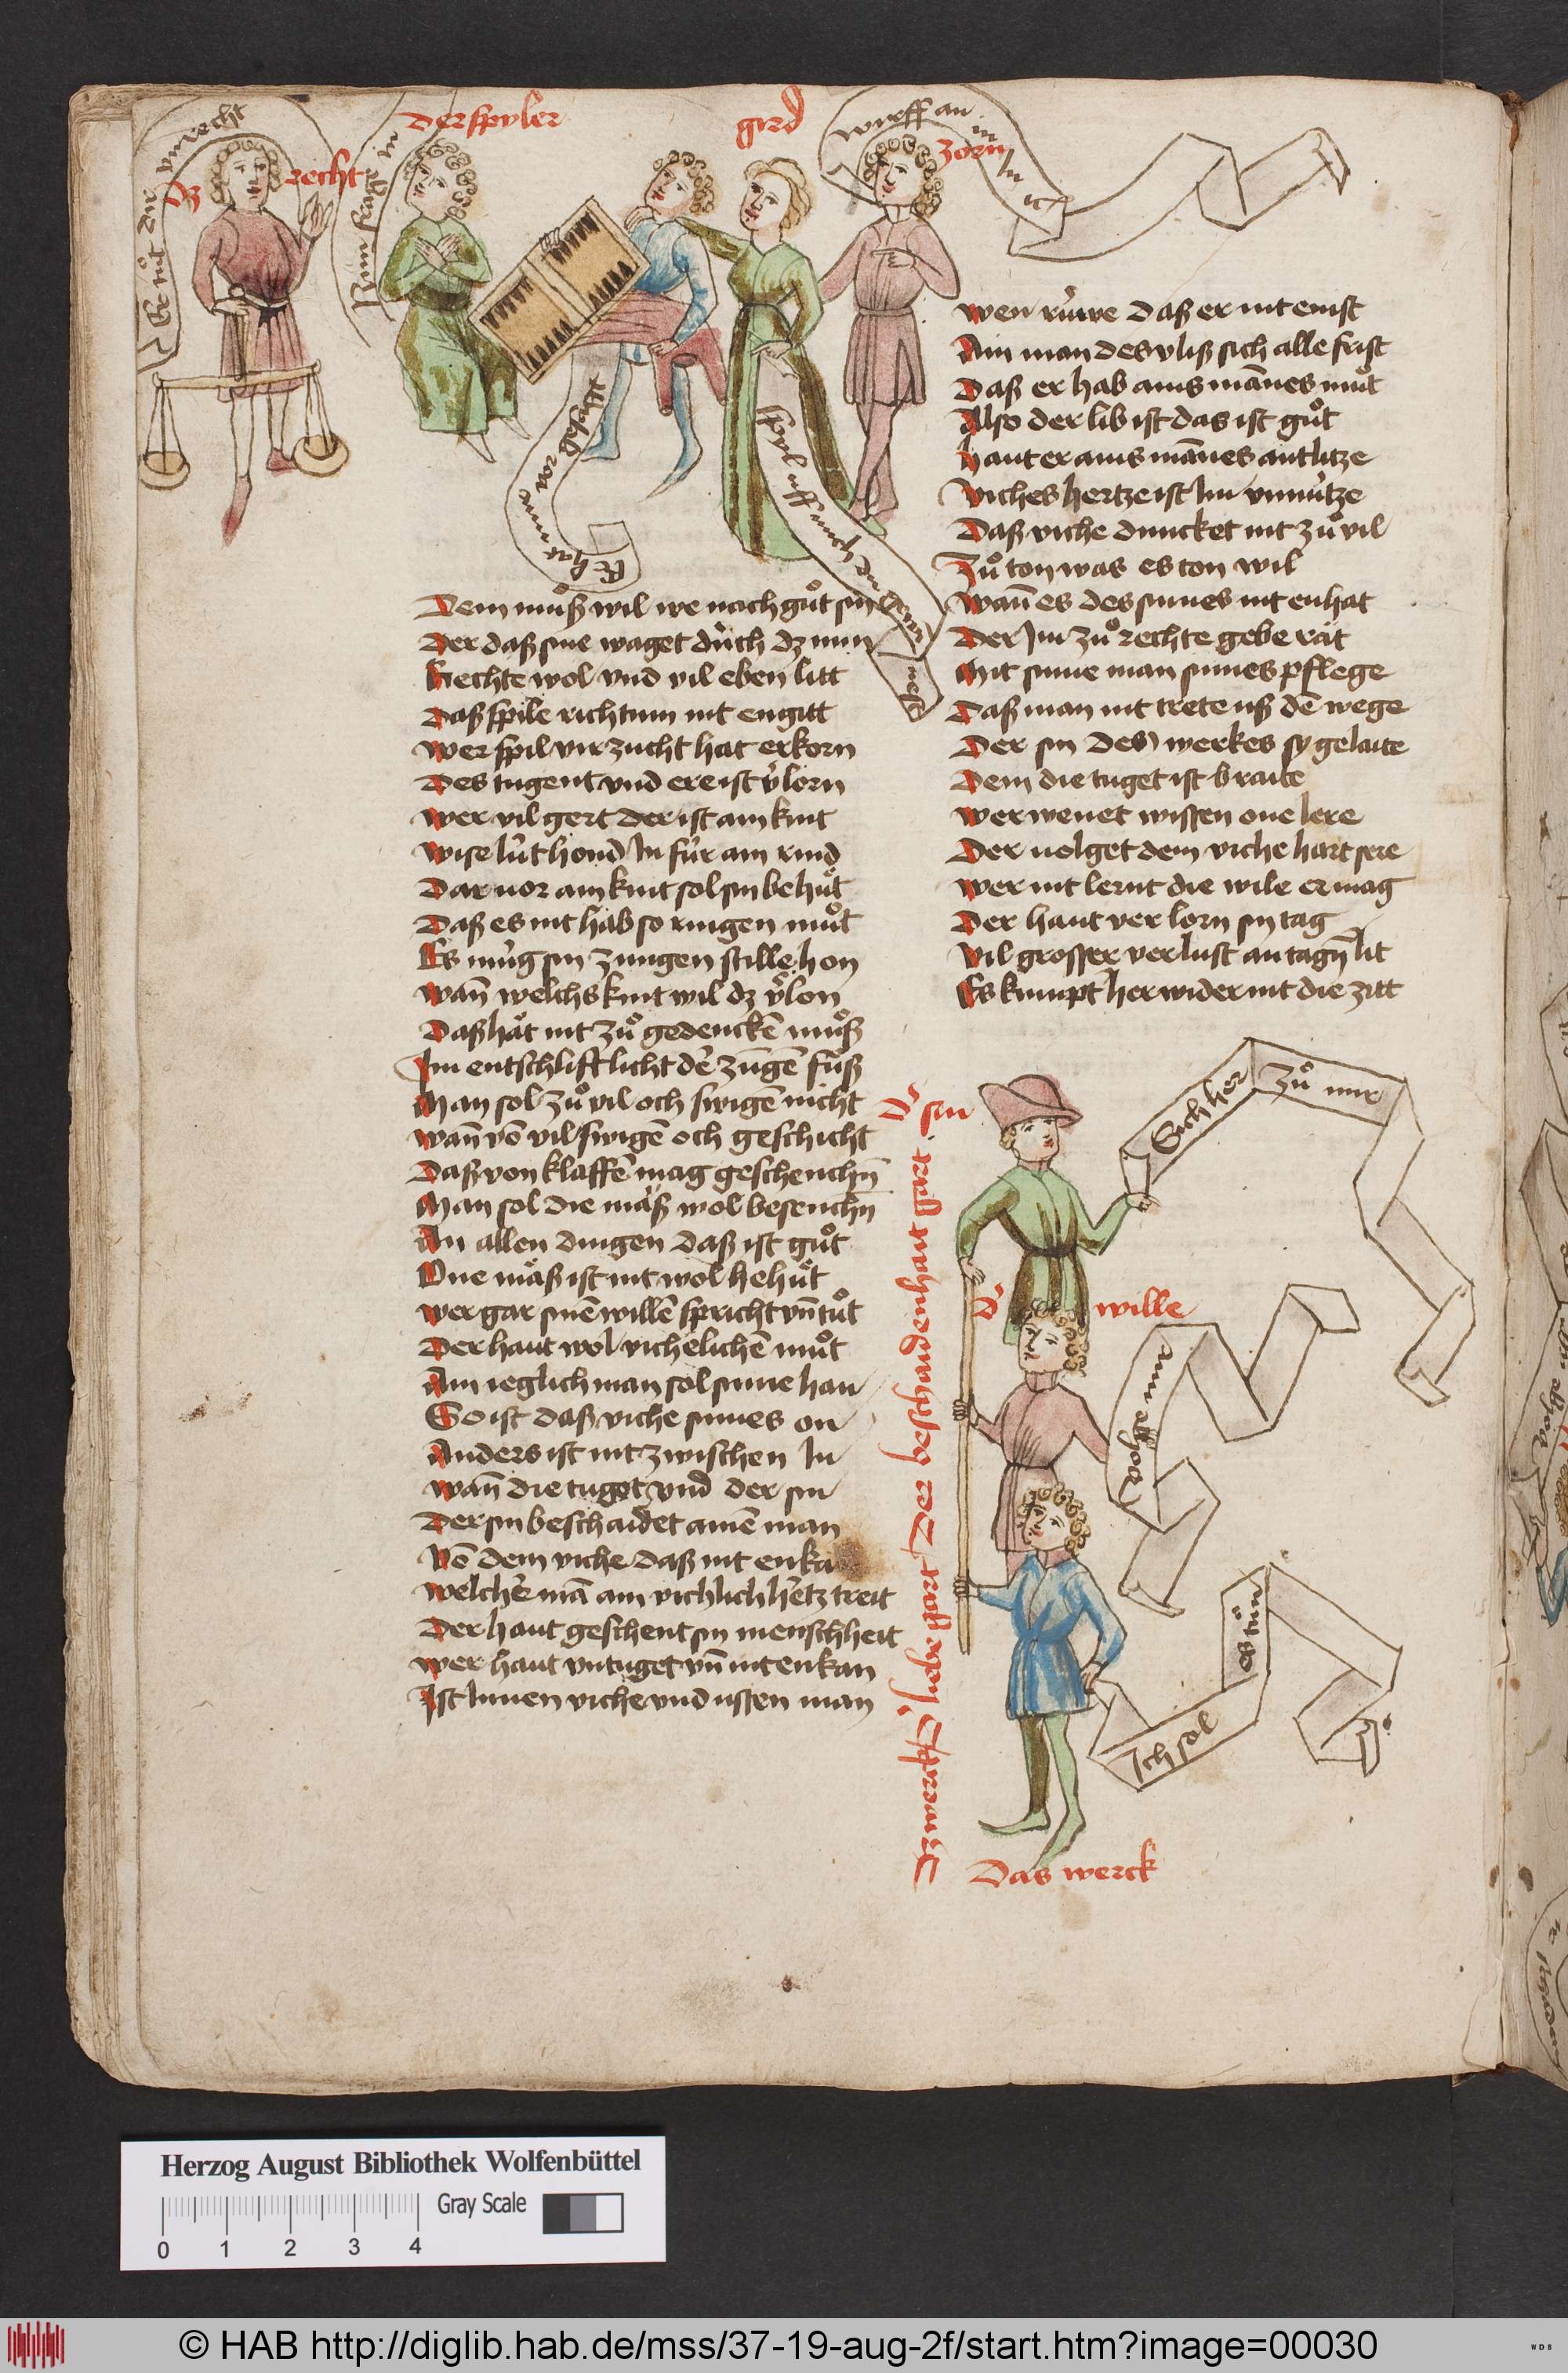 dz recht
der spyler
gird
zorn
Er tuͦt dir vnrecht
wirff an
Dem muͦß wil we nach guͦt sin
Der daß sine waget durch dz min
Rechte wol vnd vil eben litt
Daß spile richtum nit engitt
Wer spil vir zucht hat erkorn
Des tugent vnd ere ist v̾lorn
Wer vil gert der ist am kint
Wise lüt hond In für am rind
Dar uor am kint sol sin behuͦt
Daß es nit hab so ringen muͦt
Es müg sin zungen stille hon
Wan̄ welchs kint wil dz v̾lon
Daß hät nit zuͦ gedenckē muͦß
Im entschlifft licht de᷑ zūgē fuͦß
Man sol zuͦ vil och swigē nicht
Wan̄ vō vil swigē och geschicht
Daß von klaffē mag geschenchn̄
Man sol die mäß wol besenchn̄
An allen dingen daß ist guͦt
One mäß ist nit wol behuͦt
Wer gar sinē willē spricht vn̄ tuͦt
Der haut wol vichelichē muͦt
Ain ieglich man sol sinne han
So ist daß viche sinnes on
Anders ist nit zwischen In
Wan̄ die tuget vnd der sin
Der sin beschaidet ainē man
Vō dem viche daß nit enka
Welche᷑ mā am vichlich he᷑tz treit
Der haut geschent sin menschheit
Wer haut vntuget vn̄ nit enkan
Ist Innen viche vnd ussen man
Wen rüwe daß er nit enist
Ain man des vliß sich alle frist
Daß er hab ains mānes muͦt
Also der lib ist das ist guͦt
Haut er ains mānes antlitze
Viches hertze ist Im vnnütze
Daß viche duncket nit zuͦ vil
Zuͦ ton was es ton wil
Wan̄ es des sinnes nit enhat
Der Im zuͦ rechte gebe rät
Mit sinne man sinnes pflege
Daß man nit trete uß dē wege
Der sin des werkes sy gelaite
Dem die tuget ist braite
Wer wenet wissen one lere
Der uolget dem viche hart sere
Wer nit lernt die wile er mag
Der haut ver lorn sin tag
Vil grosser verlust an tagn̄ lit
Es kumpt her wider nit die zitt
D᷑ sin
Sich her
Zuͦ mir
D᷑ wille
Ich sol
es tuͦn
Dz werck D᷑ liebe gart Der beschaidenhait gart
Das werck
Herzog August Bibliothek Wolfenbüttel
Gray Scale
0 1 2 3 4
© HAB http://diglib.hab.de/mss/37-19-aug-2f/start.htm?image=00030
WDB